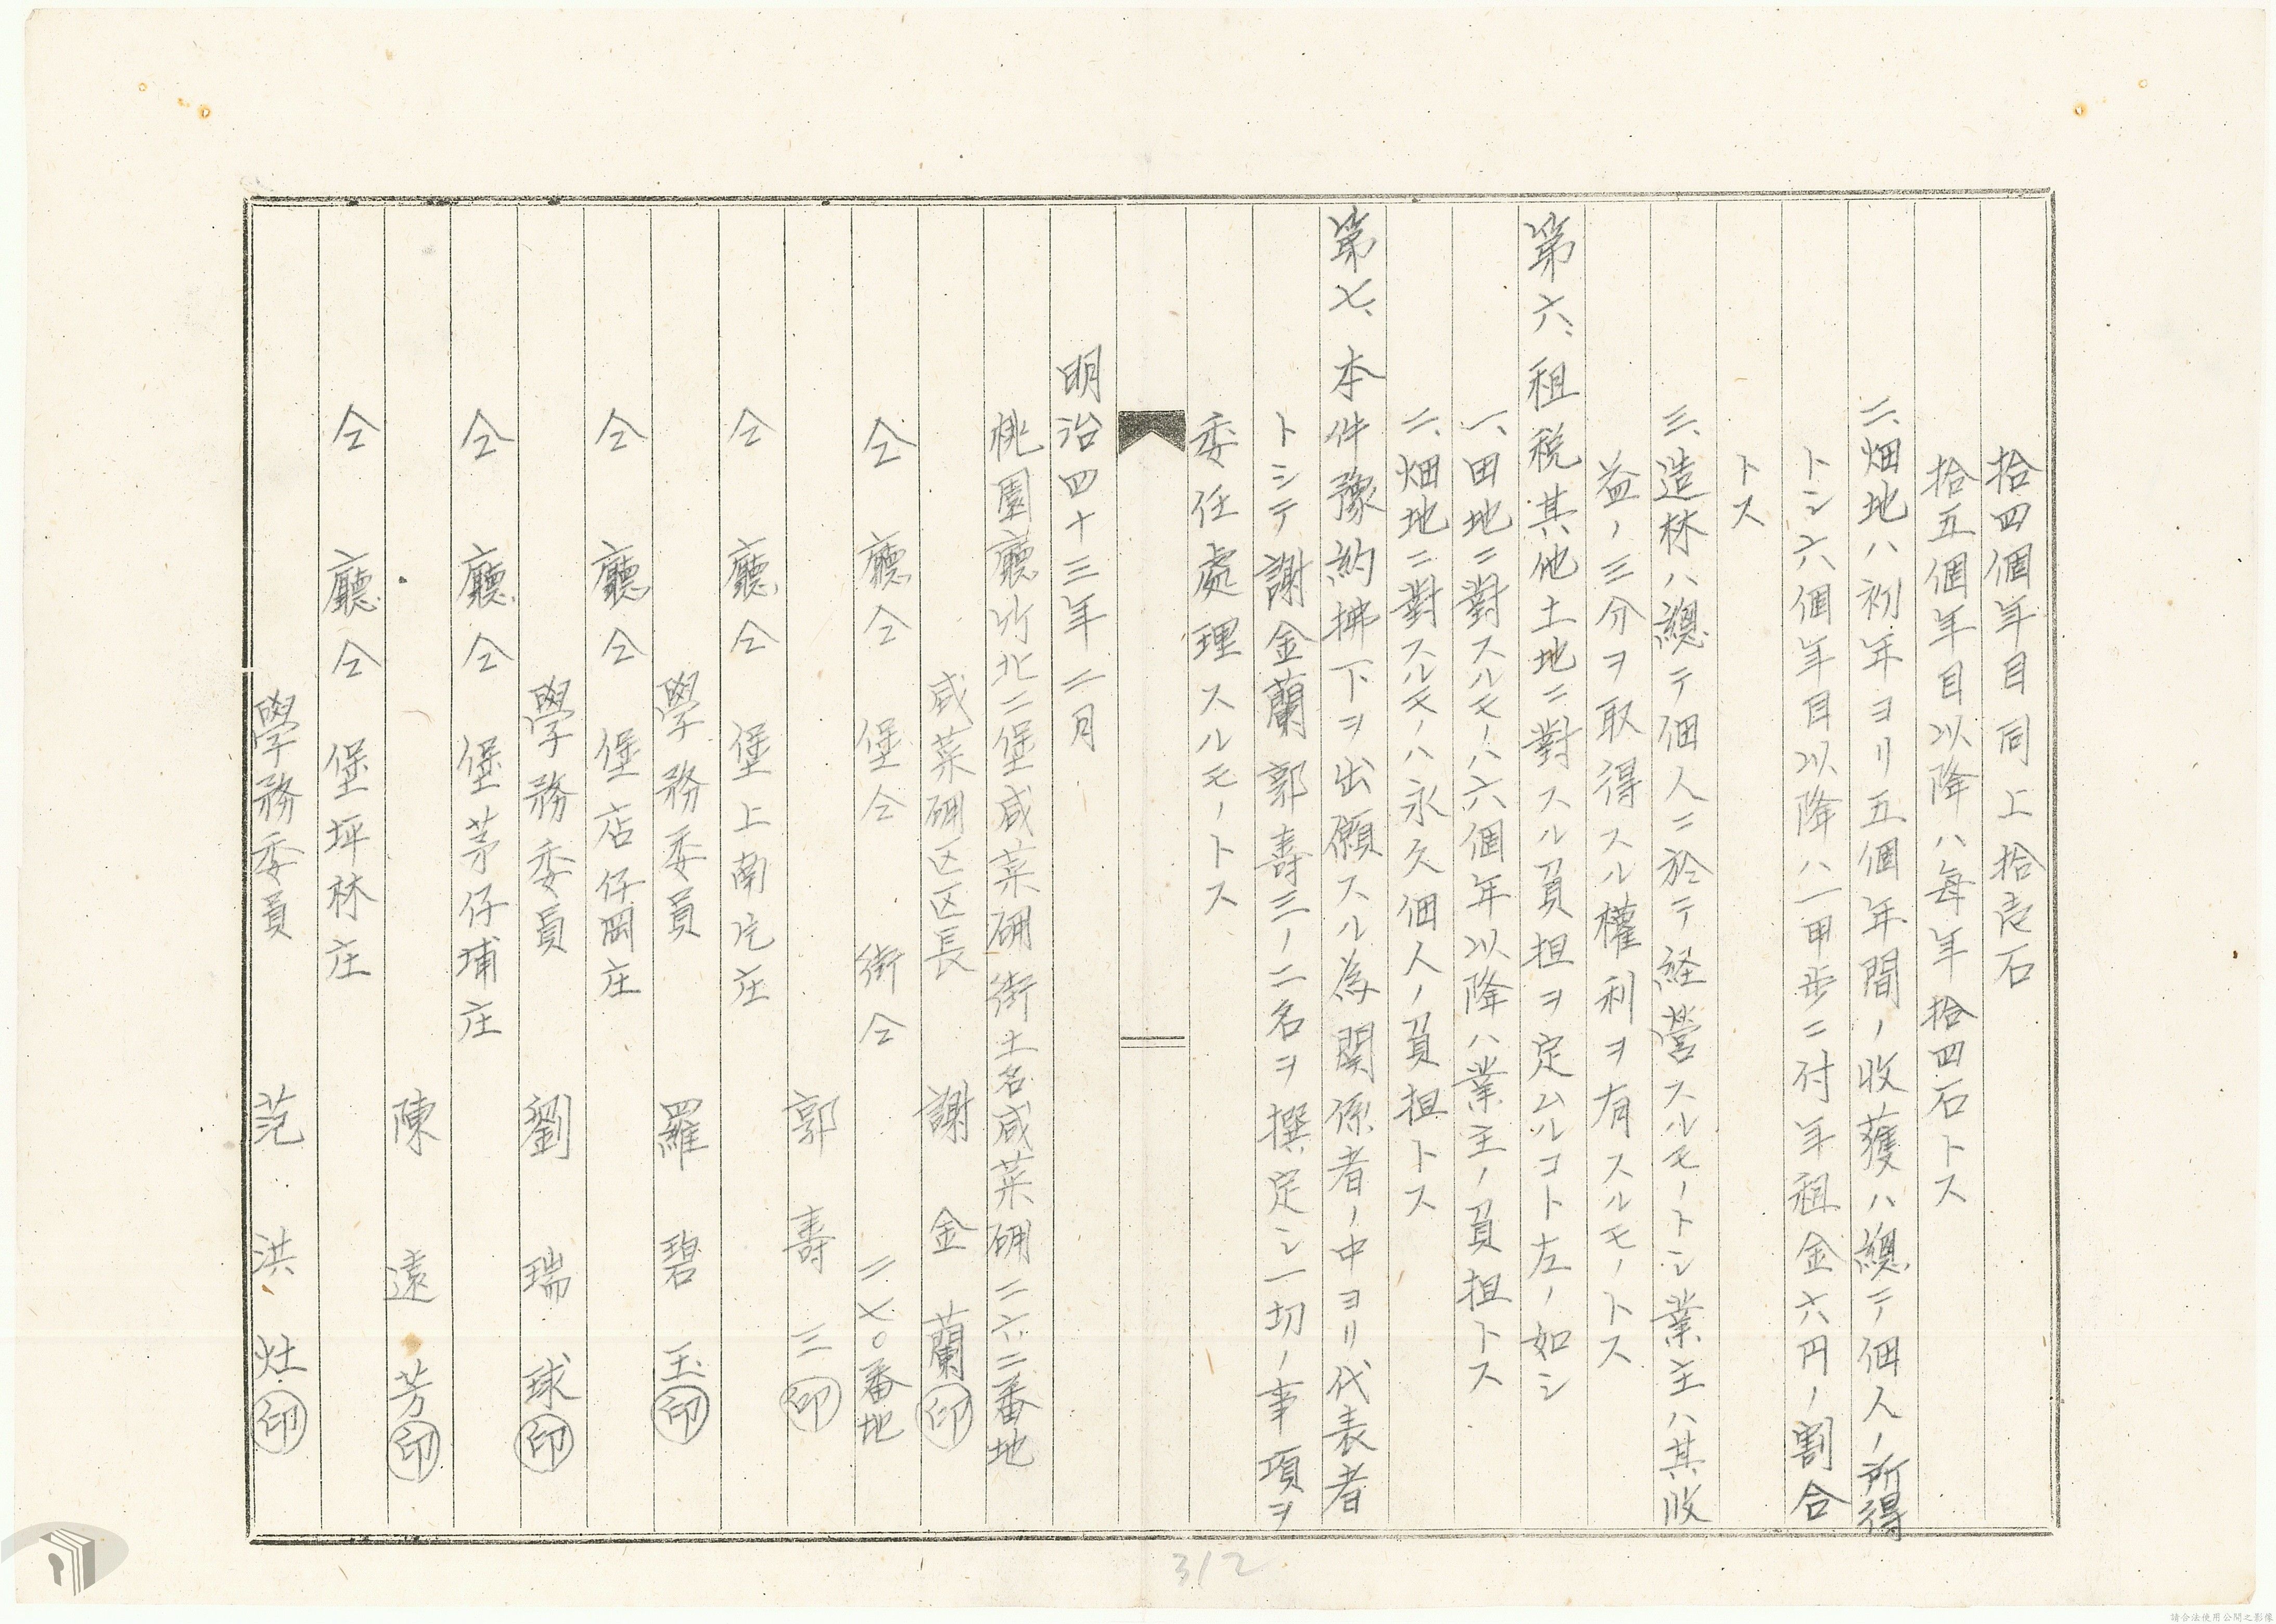 拾四個年目同上拾壱石
拾五個年目以降ハ毎年拾四石トス
二、畑地ハ初年ヨリ五個年間ノ收獲ハ總テ個人ノ所得
トシ六個年目以降ハ一甲歩ニ付年租金六円ノ割合
トス
三、造林ハ總テ個人ニ於テ経営スルモノトシ業主ハ其收
益ノ三分ヲ取得スル權利ヲ有スルモノトス
第六、租税其他土地ニ對スル負担ヲ定ムルコト左ノ如シ
一、田地ニ對スルモノハ六個年以降ハ業主ノ負担トス
二、畑地ニ對スルモノハ永久個人ノ負担トス
第七、本件豫約拂下ヲ出願スル為関係者ノ中ヨリ代表者
トシテ謝金蘭郭壽三ノ二名ヲ撰定シ一切ノ事項ヲ
委任處理スルモノトス
明治四十三年二月
桃園廳竹北二堡咸菜硼街土名咸菜硼二六二番地
咸菜硼区区長 謝金蘭㊞
仝廳仝堡仝街仝 二七〇番地
郭壽三㊞
仝廳仝堡上南片庄
學務委員 羅碧玉㊞
仝廳仝堡店仔岡庄
學務委員 劉瑞球㊞
仝廳仝堡茅仔埔庄
陳遠芳㊞
仝廳仝堡坪林庄
學務委員 范洪灶㊞
312
請合法使用公開之影像